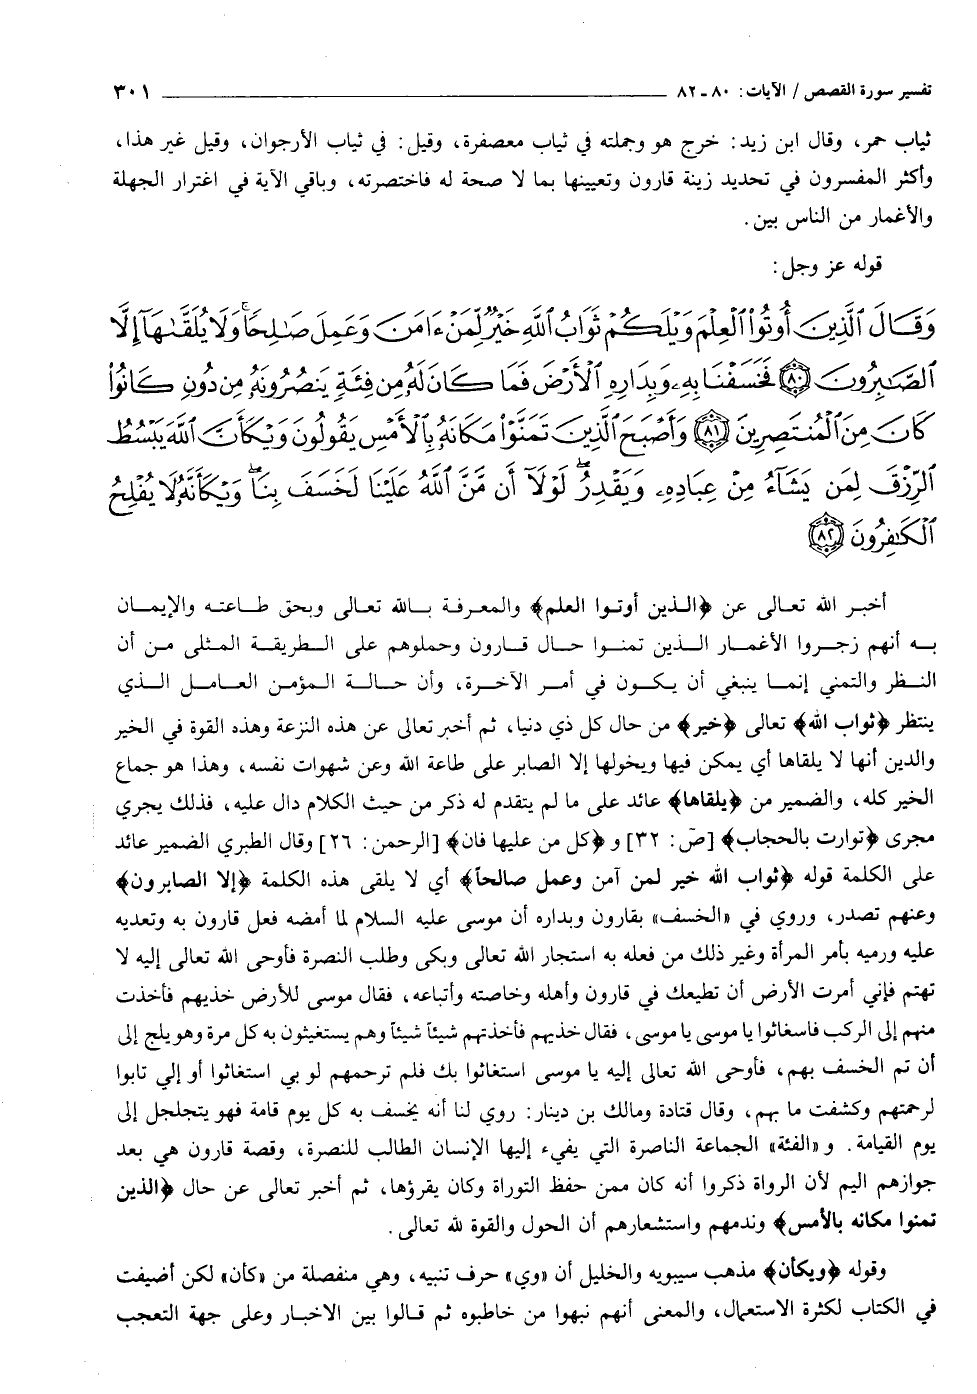 تفسير سورة القصص / الآيات: ٨٠ ـ ٨٢ ٣٠١
ثياب حمر، وقال ابن زيد: خرج هو وجملته في ثياب معصفرة، وقيل: في ثياب الأرجوان، وقيل غير هذا،
وأكثر المفسرون في تحديد زينة قارون وتعيينها بما لا صحة له فاختصرته، وباقي الآية في اغترار الجهلة
والأغمار من الناس بين.
قوله عز وجل:
وَقَالَ ٱلَّذِينَ أُوتُوا۟ ٱلْعِلْمَ وَيْلَكُمْ ثَوَابُ ٱللَّهِ خَيْرٌ لِّمَنْ ءَامَنَ وَعَمِلَ صَٰلِحًا ۚ وَلَا يُلَقَّىٰهَآ إِلَّا
ٱلصَّٰبِرُونَ ﴿٨٠﴾ فَخَسَفْنَا بِهِۦ وَبِدَارِهِ ٱلْأَرْضَ فَمَا كَانَ لَهُۥ مِن فِئَةٍ يَنصُرُونَهُۥ مِن دُونِ كَانُوا۟
كَانَ مِنَ ٱلْمُنتَصِرِينَ ﴿٨١﴾ وَأَصْبَحَ ٱلَّذِينَ تَمَنَّوْا۟ مَكَانَهُۥ بِٱلْأَمْسِ يَقُولُونَ وَيْكَأَنَّ ٱللَّهَ يَبْسُطُ
ٱلرِّزْقَ لِمَن يَشَآءُ مِنْ عِبَادِهِۦ وَيَقْدِرُ ۖ لَوْلَآ أَن مَّنَّ ٱللَّهُ عَلَيْنَا لَخَسَفَ بِنَا ۖ وَيْكَأَنَّهُۥ لَا يُفْلِحُ
ٱلْكَٰفِرُونَ ﴿٨٢﴾
أخبر الله تعالى عن ﴿الذين أوتوا العلم﴾ والمعرفة بالله تعالى وبحق طاعته والإيمان
به أنهم زجروا الأغمار الذين تمنوا حال قارون وحملوهم على الطريقة المثلى من أن
النظر والتمني إنما ينبغي أن يكون في أمر الآخرة، وأن حالة المؤمن العامل الذي
ينتظر ﴿ثواب الله﴾ تعالى ﴿خير﴾ من حال كل ذي دنيا، ثم أخبر تعالى عن هذه النزعة وهذه القوة في الخير
والدين أنها لا يلقاها أي يمكن فيها ويخولها إلا الصابر على طاعة الله وعن شهوات نفسه، وهذا هو جماع
الخير كله، والضمير من ﴿يلقاها﴾ عائد على ما لم يتقدم له ذكر من حيث الكلام دال عليه، فذلك يجري
مجرى ﴿توارت بالحجاب﴾ [صّ: ٣٢] و ﴿كل من عليها فان﴾ [الرحمن: ٢٦] وقال الطبري الضمير عائد
على الكلمة قوله ﴿ثواب الله خير لمن آمن وعمل صالحاً﴾ أي لا يلقى هذه الكلمة ﴿إلا الصابرون﴾
وعنهم تصدر، وروي في «الخسف» بقارون وبداره أن موسى عليه السلام لما أمضه فعل قارون به وتعديه
عليه ورميه بأمر المرأة وغير ذلك من فعله به استجار الله تعالى وبكى وطلب النصرة فأوحى الله تعالى إليه لا
تهتم فإني أمرت الأرض أن تطيعك في قارون وأهله وخاصته وأتباعه، فقال موسى للأرض خذيهم فأخذت
منهم إلى الركب فاسغاثوا يا موسى يا موسى، فقال خذيهم فأخذتهم شيئاً شيئاً وهم يستغيثون به كل مرة وهو يلج إلى
أن تم الخسف بهم، فأوحى الله تعالى إليه يا موسى استغاثوا بك فلم ترحمهم لو بي استغاثوا أو إلي تابوا
لرحمتهم وكشفت ما بهم، وقال قتادة ومالك بن دينار: روي لنا أنه يخسف به كل يوم قامة فهو يتجلجل إلى
يوم القيامة. و «الفئة» الجماعة الناصرة التي يفيء إليها الإنسان الطالب للنصرة، وقصة قارون هي بعد
جوازهم اليم لأن الرواة ذكروا أنه كان ممن حفظ التوراة وكان يقرؤها، ثم أخبر تعالى عن حال ﴿الذين
تمنوا مكانه بالأمس﴾ وندمهم واستشعارهم أن الحول والقوة لله تعالى.
وقوله ﴿ويكأن﴾ مذهب سيبويه والخليل أن «وي» حرف تنبيه، وهي منفصلة من «كأن» لكن أضيفت
في الكتاب لكثرة الاستعمال، والمعنى أنهم نبهوا من خاطبوه ثم قالوا بين الاخبار وعلى جهة التعجب